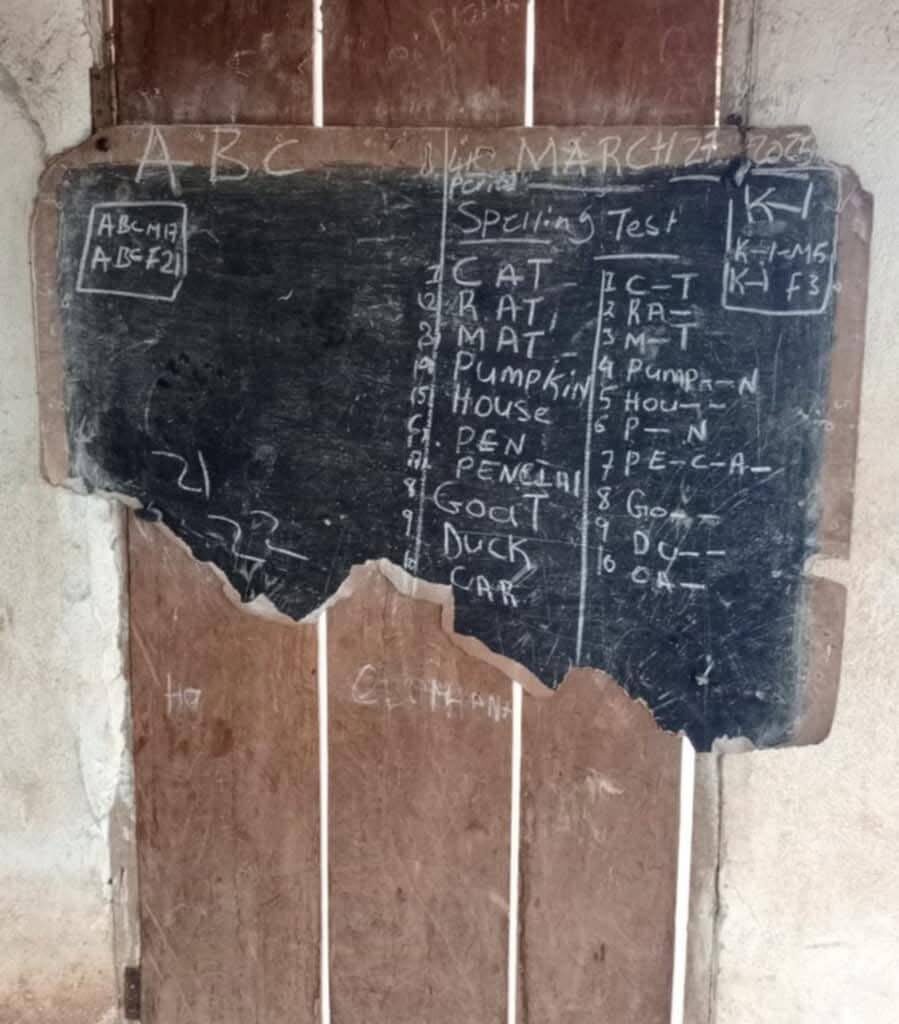 A B C
MARCH 27 2025
Period
ABC M17
ABC F21
K-1
K-1-M5
K-1 F3
Spelling Test
1 CAT
2 RAT
3 MAT
PUMPKIN
5 HOUSE
PEN
PENCIAl
8 GOaT
9 DUCK
10 CAR
1 C-T
2 RA-
3 M-T
4 PUMP--N
5 HOU--
6 P-N
7 PE-C-A-
8 Go--
9 DU--
10 CA-
21